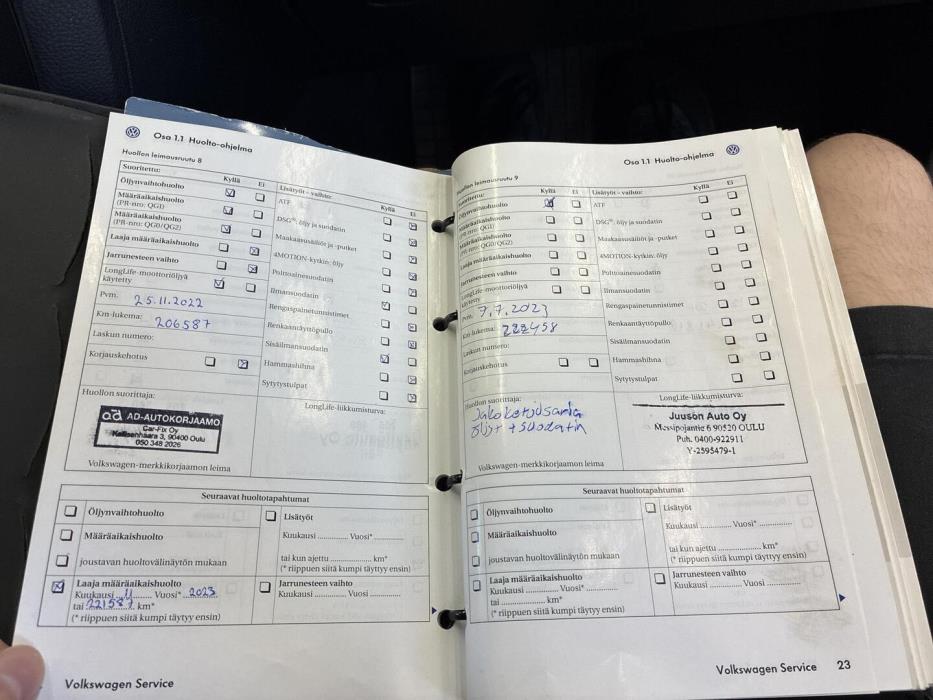 Osa 1.1 Huolto-ohjelma
Huollon leimausruutu 8
Suoritettu:
Kyllä
Ei
Öljynvaihtohuolto
Määräaikaishuolto
(PR-nro: QG1)
Määräaikaishuolto
(PR-nro: QG0/QG2)
Laaja määräaikaishuolto
Jarrunesteen vaihto
LongLife-moottoriöljyä
käytetty
Pvm. 25.11.2022
Km-lukema: 206587
Laskun numero:
Korjauskehotus
Lisätyöt - vaihto:
Kyllä
Ei
ATF
DSG®, öljy ja suodatin
Maakaasusäiliöt ja -putket
4MOTION-kytkin: öljy
Polttoainesuodatin
Ilmansuodatin
Rengaspainetunnistimet
Renkaantäyttöpullo
Sisäilmansuodatin
Hammashihna
Sytytystulpat
Huollon suorittaja:
LongLife-liikkumisturva:
ad AD-AUTOKORJAAMO
Car-Fix Oy
Kallisenhaara 3, 90400 Oulu
050 348 2026
Volkswagen-merkkikorjaamon leima
Seuraavat huoltotapahtumat
Öljynvaihtohuolto
Määräaikaishuolto
joustavan huoltovälinäytön mukaan
Laaja määräaikaishuolto
Kuukausi 11 Vuosi* 2023
tai 221587 km*
(* riippuen siitä kumpi täytyy ensin)
Lisätyöt
Kuukausi ............ Vuosi* ............
tai kun ajettu ............ km*
(* riippuen siitä kumpi täytyy ensin)
Jarrunesteen vaihto
Kuukausi ............ Vuosi ............
Volkswagen Service
Osa 1.1 Huolto-ohjelma
Huollon leimausruutu 9
Suoritettu:
Kyllä
Ei
Öljynvaihtohuolto
Määräaikaishuolto
(PR-nro: QG1)
Määräaikaishuolto
(PR-nro: QG0/QG2)
Laaja määräaikaishuolto
Jarrunesteen vaihto
LongLife-moottoriöljyä
käytetty
Pvm. 7.7.2023
Km-lukema: 222458
Laskun numero:
Korjauskehotus
Lisätyöt - vaihto:
Kyllä
Ei
ATF
DSG®, öljy ja suodatin
Maakaasusäiliöt ja -putket
4MOTION-kytkin: öljy
Polttoainesuodatin
Ilmansuodatin
Rengaspainetunnistimet
Renkaantäyttöpullo
Sisäilmansuodatin
Hammashihna
Sytytystulpat
Huollon suorittaja:
Jakoketjusarja
öljyt + suodatin
LongLife-liikkumisturva:
Juuson Auto Oy
Messipojantie 6 90520 OULU
Puh. 0400-922911
Y-2595479-1
Volkswagen-merkkikorjaamon leima
Seuraavat huoltotapahtumat
Öljynvaihtohuolto
Määräaikaishuolto
joustavan huoltovälinäytön mukaan
Laaja määräaikaishuolto
Kuukausi ............ Vuosi* ............
tai ............ km*
(* riippuen siitä kumpi täytyy ensin)
Lisätyöt
Kuukausi ............ Vuosi* ............
tai kun ajettu ............ km*
(* riippuen siitä kumpi täytyy ensin)
Jarrunesteen vaihto
Kuukausi ............ Vuosi ............
Volkswagen Service 23